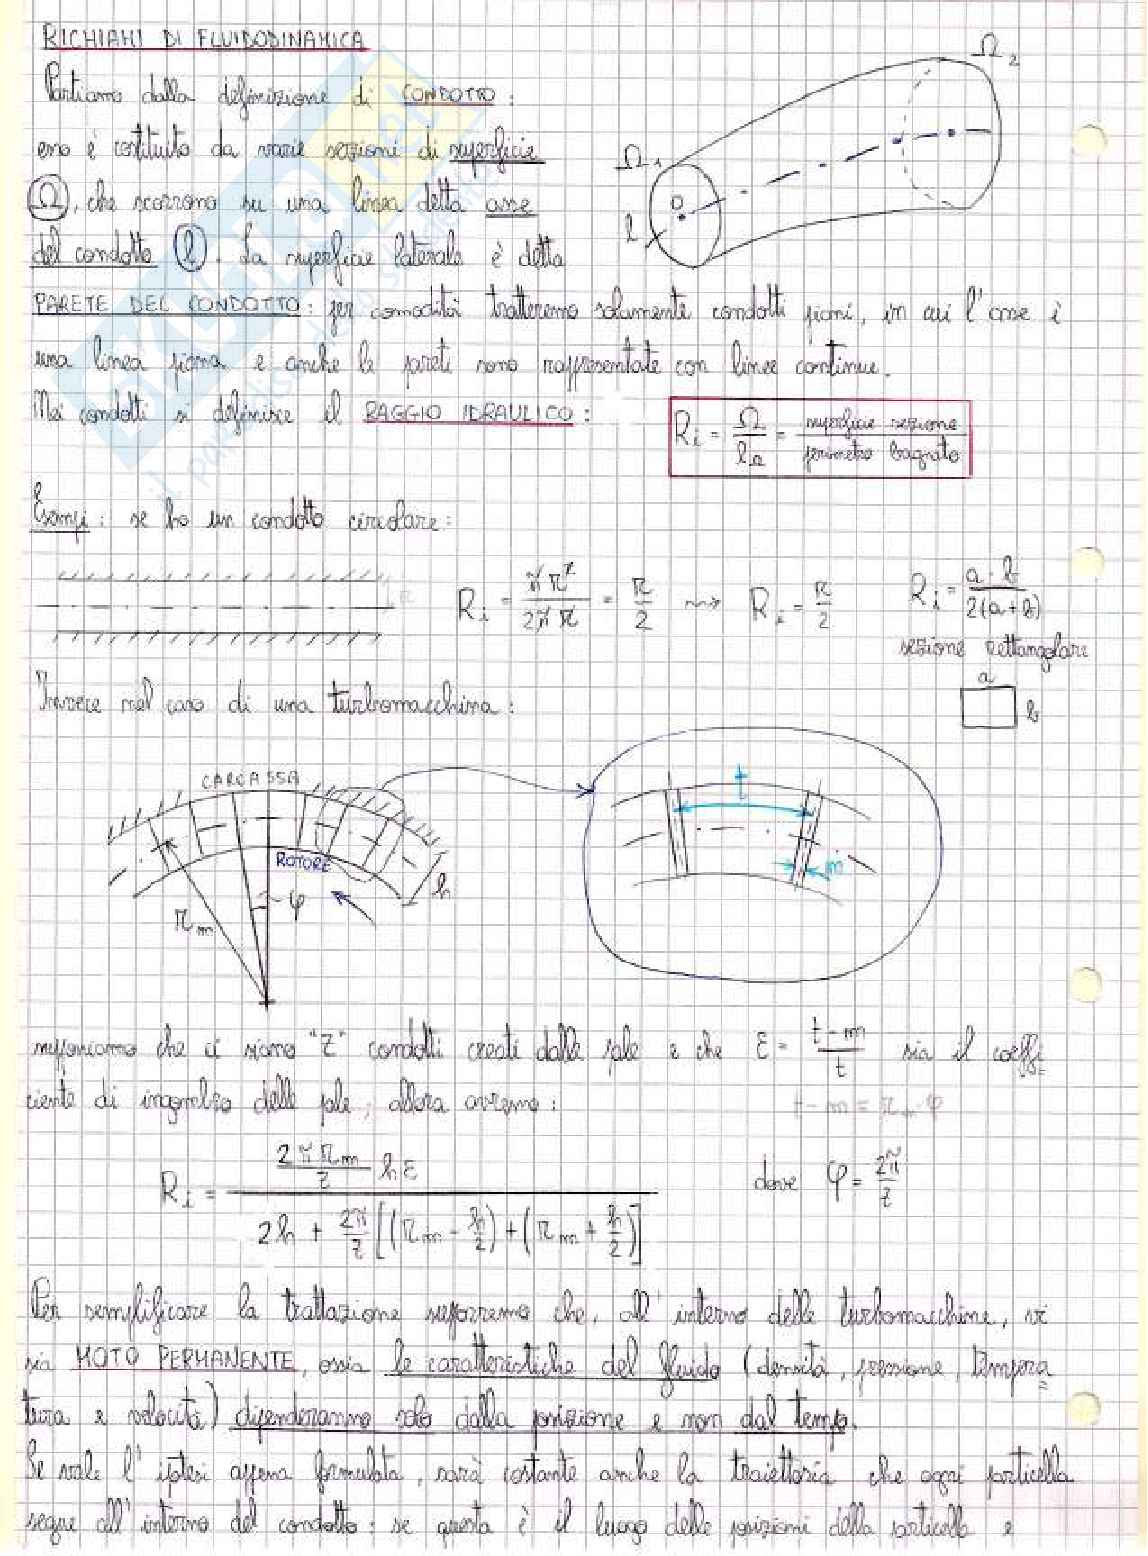 RICHIAMI DI FLUIDODINAMICA
Partiamo dalla definizione di CONDOTTO:
esso è costituito da varie sezioni di superficie
Ω, che scorrono su una linea detta asse
del condotto l. La superficie laterale è detta
PARETE DEL CONDOTTO: per comodità tratteremo solamente condotti piani, in cui l'asse è
una linea piana e anche le pareti sono rappresentate con linee continue.
Nei condotti si definisce il RAGGIO IDRAULICO:
Ω1
Ω2
O
l
Ri = Ω / lΩ = superficie sezione / perimetro bagnato
Esempi: se ho un condotto circolare:
Ri = π r² / 2 π r = r/2 ⇝ Ri = r/2
Ri = a · b / 2(a+b)
sezione rettangolare
a
b
Invece nel caso di una turbomacchina:
CARCASSA
ROTORE
rm
φ
h
t
m
supponiamo che ci siano "Z" condotti creati dalle pale e che ε = t-m / t sia il coeffi
ciente di ingombro delle pale, allora avremo:
t-m = rm · φ
Ri = (2πrm / z) h ε / 2h + 2π/z [(rm - h/2) + (rm + h/2)]
dove φ = 2π/z
Per semplificare la trattazione supporremo che, all'interno delle turbomacchine, vi
sia MOTO PERMANENTE, ossia le caratteristiche del fluido (densità, pressione, tempera
tura e velocità) dipenderanno solo dalla posizione e non dal tempo.
Se vale l'ipotesi appena formulata, sarà costante anche la traiettoria che ogni particella
segue all'interno del condotto: se questa è il luogo delle posizioni della particella e